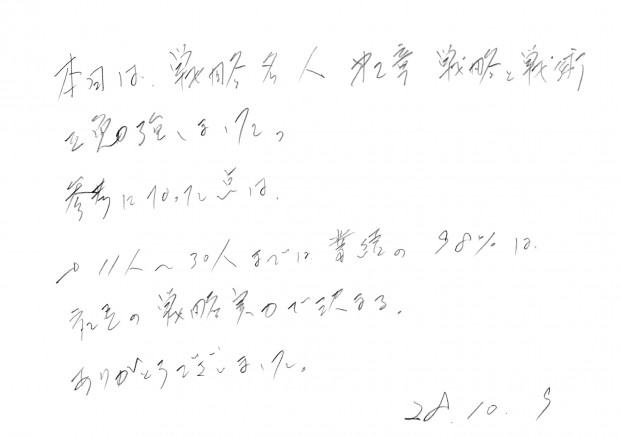 本日は、戦略名人 第2章 戦略と戦術
を勉強しました。
参考になった点は、
11人〜30人までは業績の98%は
社長の戦略実力で決まる。
ありがとうございました。
28.10.9